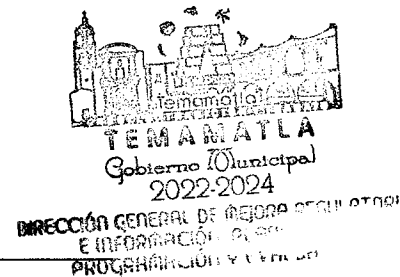 temamatla
TEMAMATLA
Gobierno Municipal
2022-2024
DIRECCIÓN GENERAL DE MEJORA
E INFORMACIÓN
PROGRAMACIÓN Y